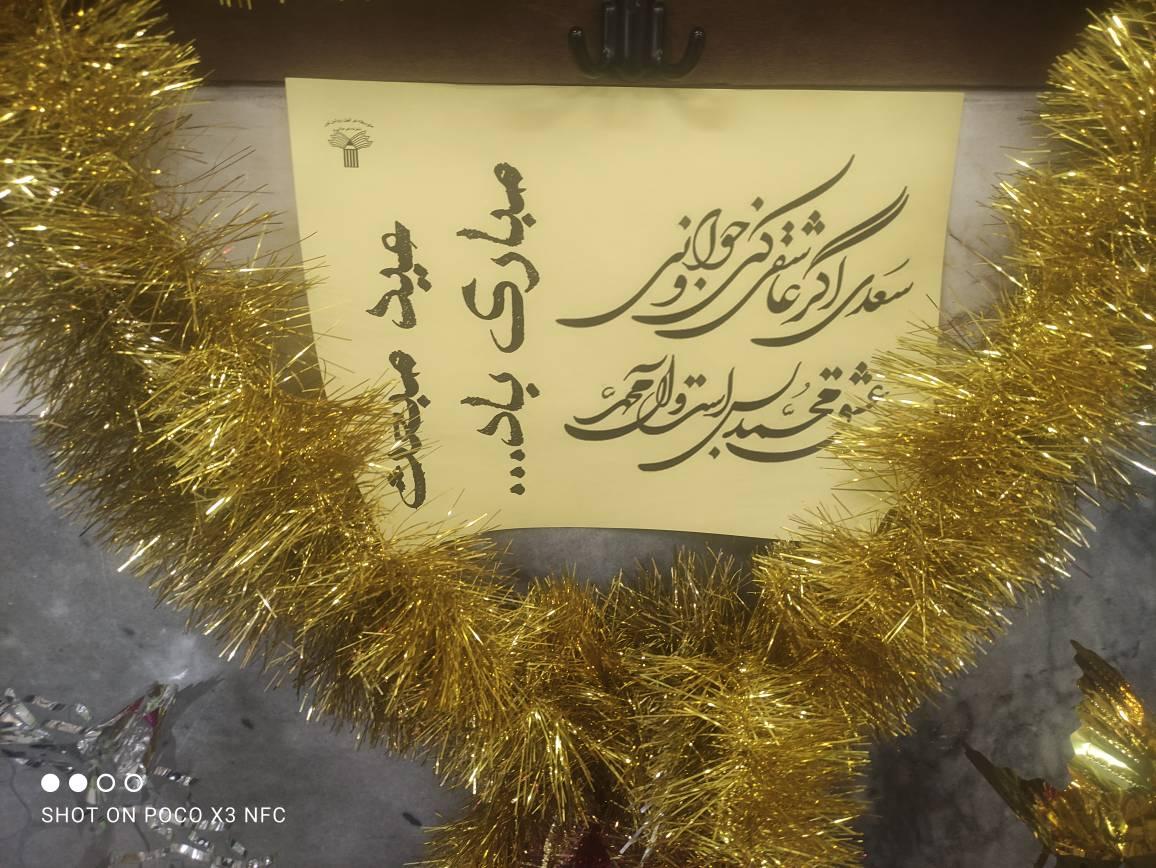 سعدی اگر عاشقی کنی و جوانی
عشق محمد بس است و آل محمد
عید مبعث
مبارک باد...
SHOT ON POCO X3 NFC